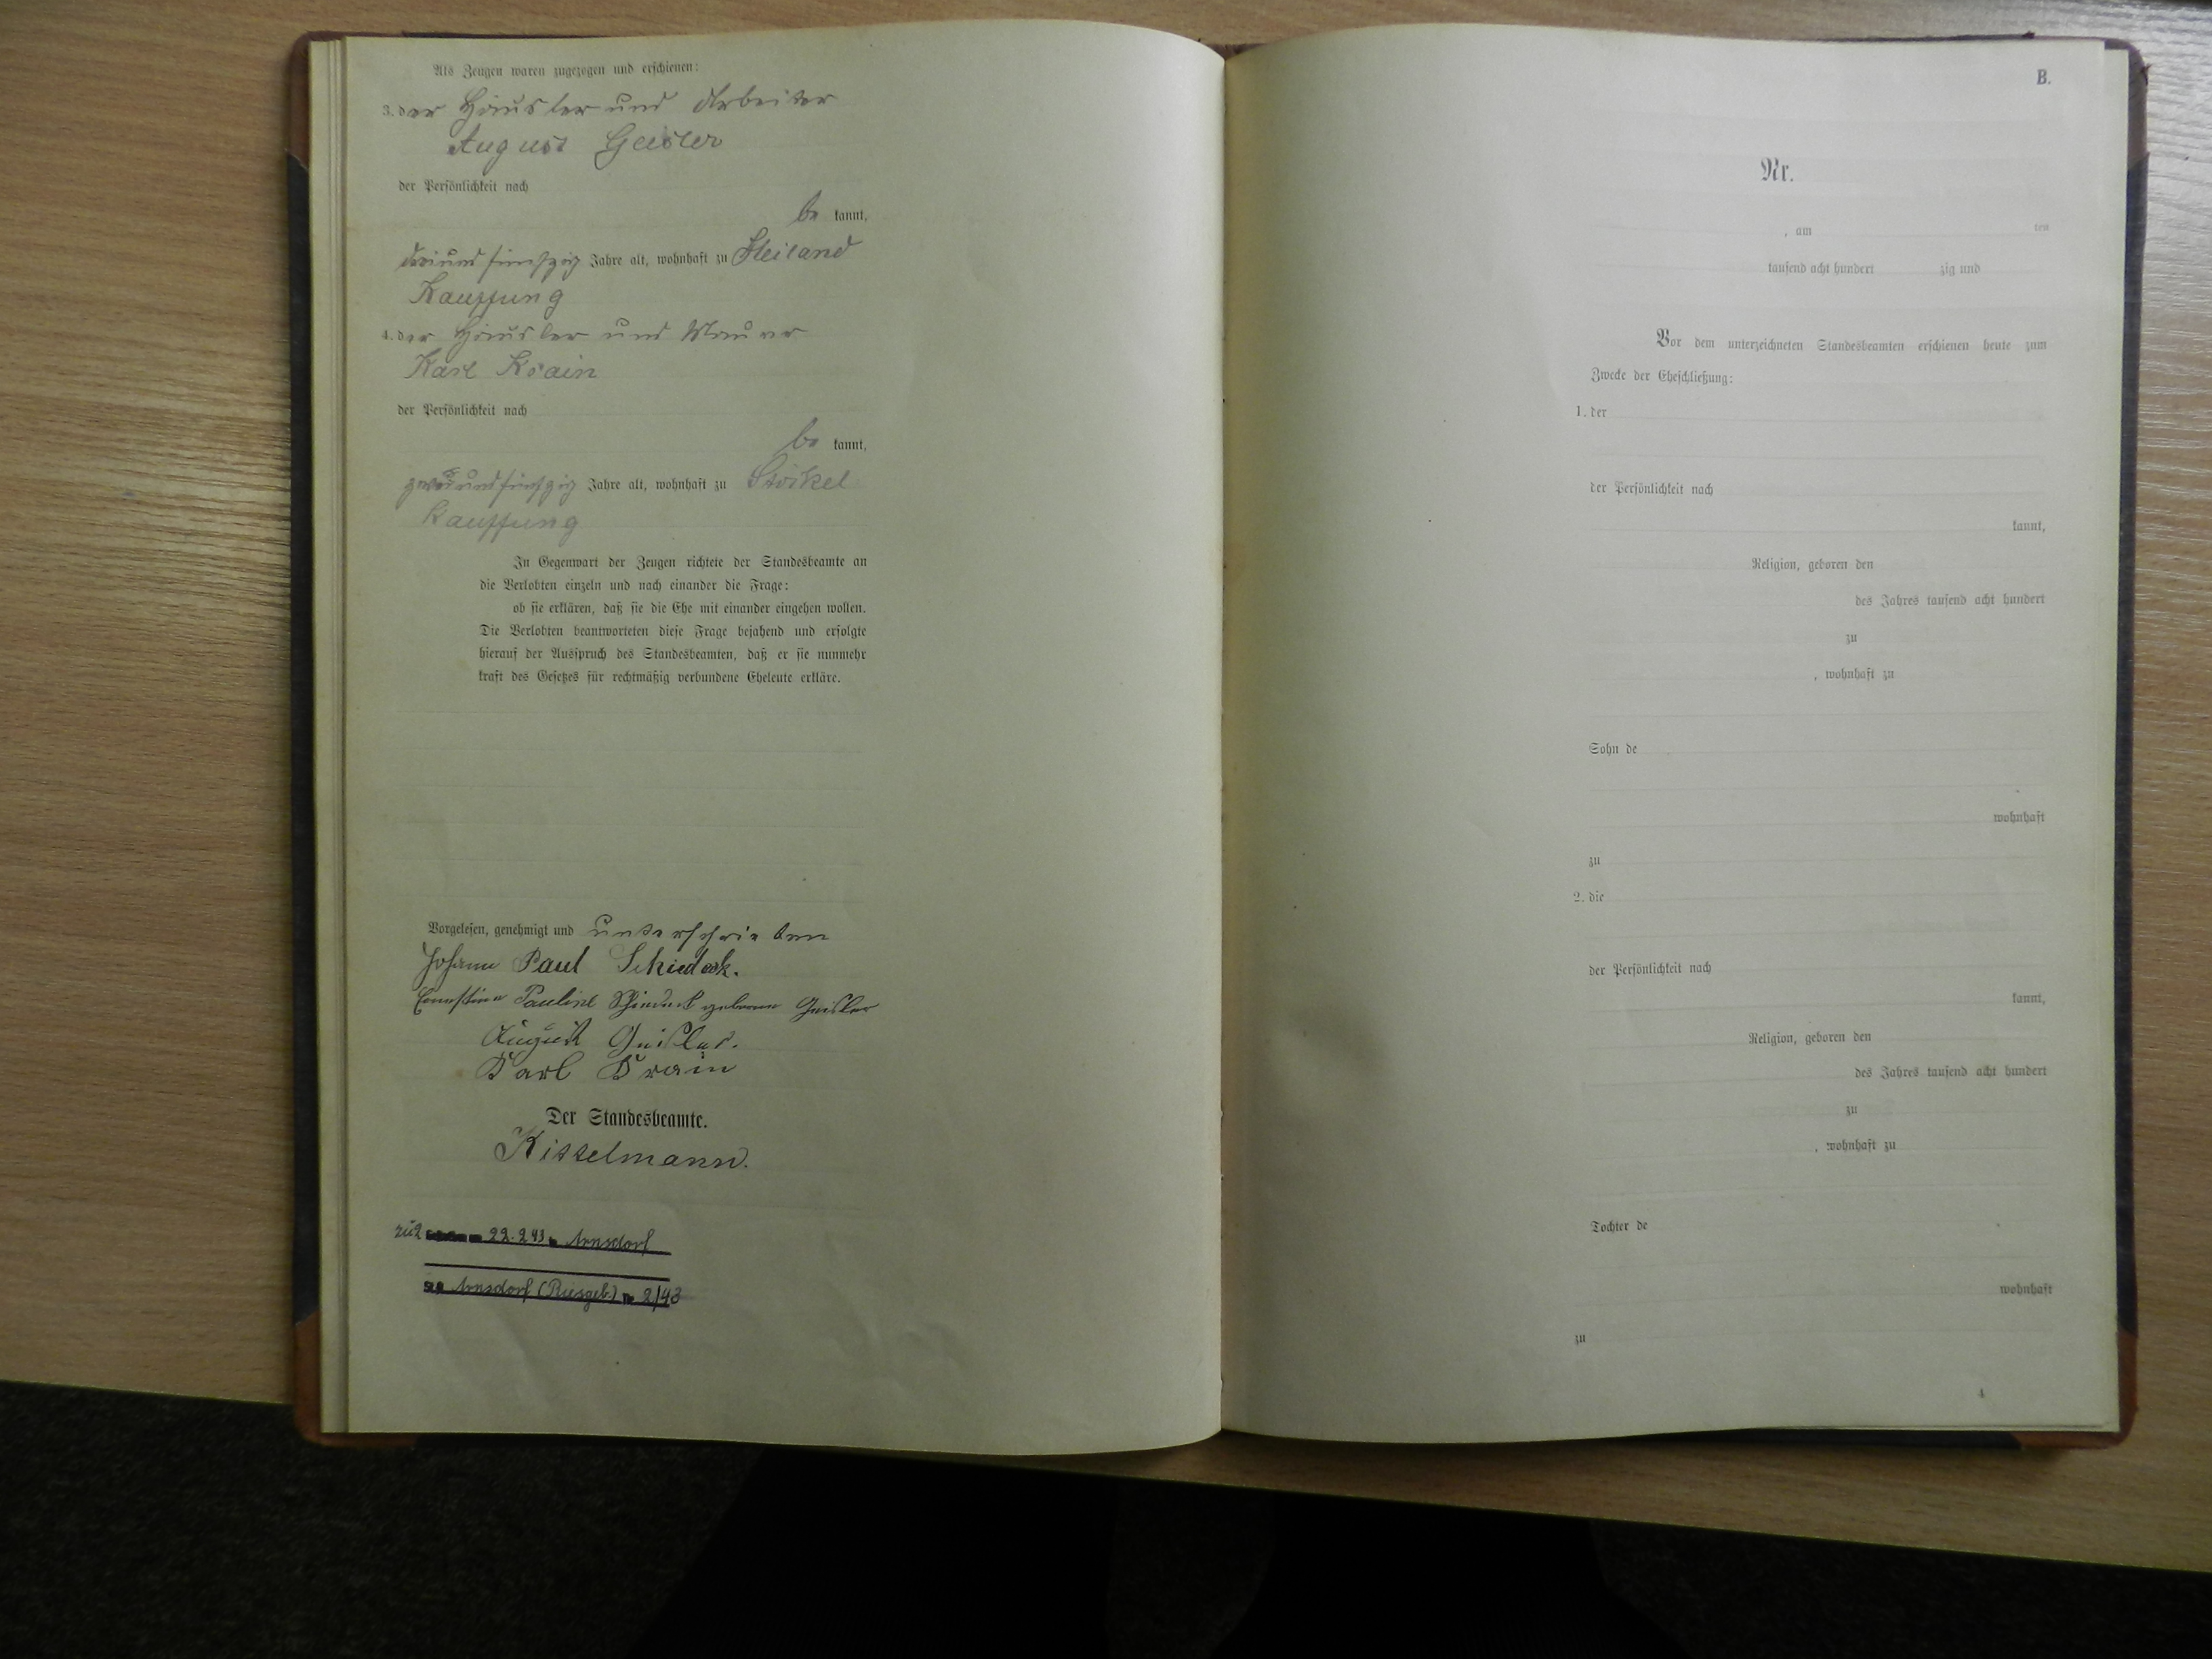 Als Zeugen waren zugezogen und erschienen:
3. der Häusler und Arbeiter
August Geisler
der Persönlichkeit nach
be kannt,
dreiundfünfzig Jahre alt, wohnhaft zu Heiland
Kauffung
4. der Häusler und Maurer
Karl Krain
der Persönlichkeit nach
be kannt,
zweiundfünfzig Jahre alt, wohnhaft zu Stöckel
Kauffung
In Gegenwart der Zeugen richtete der Standesbeamte an
die Verlobten einzeln und nach einander die Frage:
ob sie erklären, daß sie die Ehe mit einander eingehen wollen.
Die Verlobten beantworteten diese Frage bejahend und erfolgte
hierauf der Ausspruch des Standesbeamten, daß er sie nunmehr
kraft des Gesetzes für rechtmäßig verbundene Eheleute erkläre.
Vorgelesen, genehmigt und unterschrieben
Johann Paul Schindek.
Ernestine Pauline geborene Geisler
August Geisler.
Karl Krain
Der Standesbeamte.
Kisselmann.
zu 2 22.2.43 Arnsdorf
Arnsdorf (Riesgeb.) Nr 2/43
B.
Nr.
, am ten
tausend acht hundert zig und
Vor dem unterzeichneten Standesbeamten erschienen heute zum
Zwecke der Eheschließung:
1. der
der Persönlichkeit nach
kannt,
Religion, geboren den
des Jahres tausend acht hundert
zu
, wohnhaft zu
Sohn de
wohnhaft
zu
2. die
der Persönlichkeit nach
kannt,
Religion, geboren den
des Jahres tausend acht hundert
zu
, wohnhaft zu
Tochter de
wohnhaft
zu
4